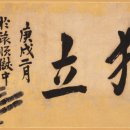 立
庚戌二月
於旅順獄中